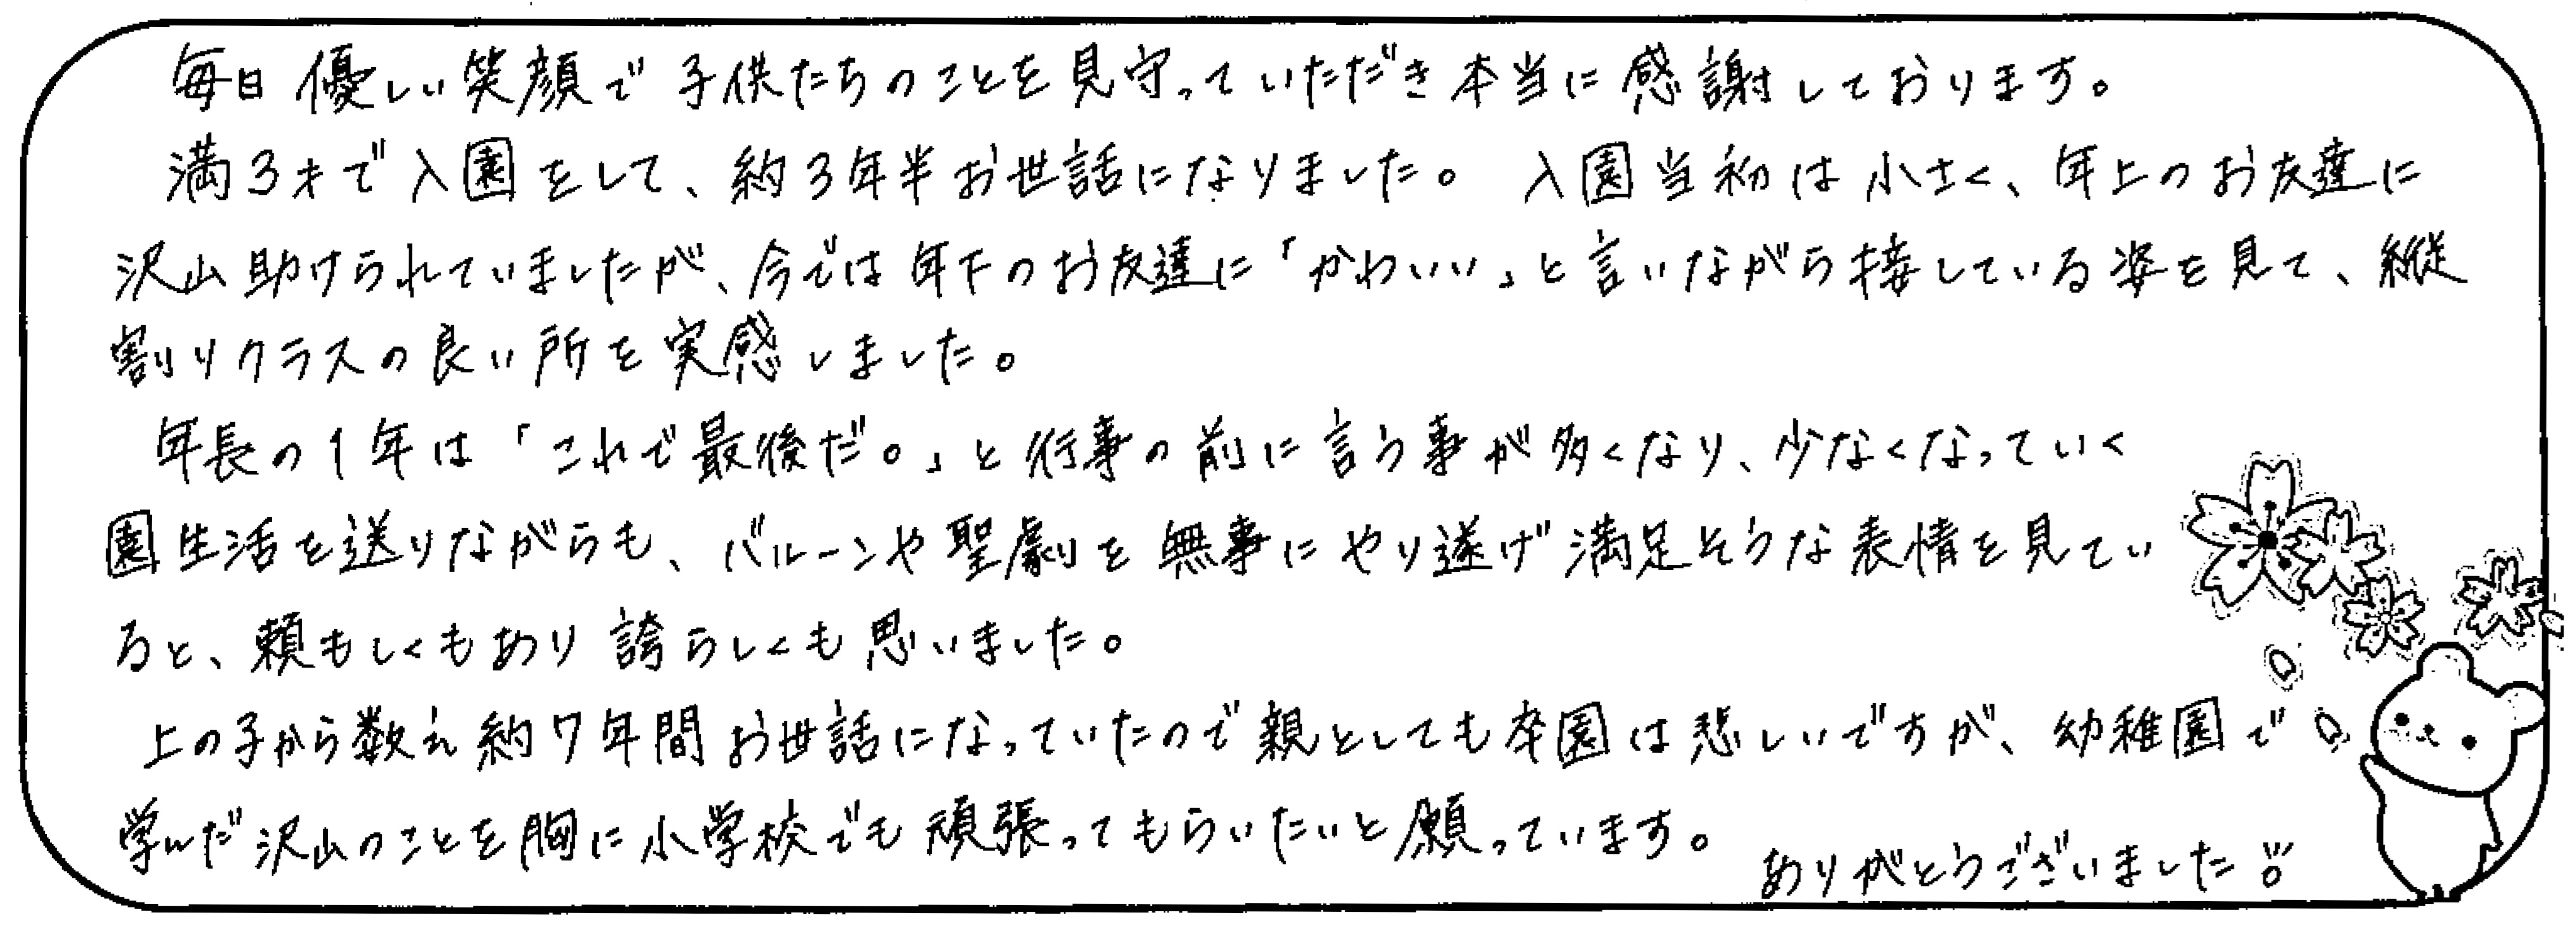 毎日優しい笑顔で子供たちのことを見守っていただき本当に感謝しております。
満3才で入園をして、約3年半お世話になりました。入園当初は小さく、年上のお友達に
沢山助けられていましたが、今では年下のお友達に「かわいい」と言いながら接している姿を見て、縦
割りクラスの良い所を実感しました。
年長の1年は「これで最後だ。」と行事の前に言う事が多くなり、少なくなっていく
園生活を送りながらも、バルーンや聖劇を無事にやり遂げ満足そうな表情を見てい
ると、頼もしくもあり誇らしくも思いました。
上の子から数え約7年間お世話になっていたので親としても卒園は悲しいですが、幼稚園で
学んだ沢山のことを胸に小学校でも頑張ってもらいたいと願っています。
ありがとうございました